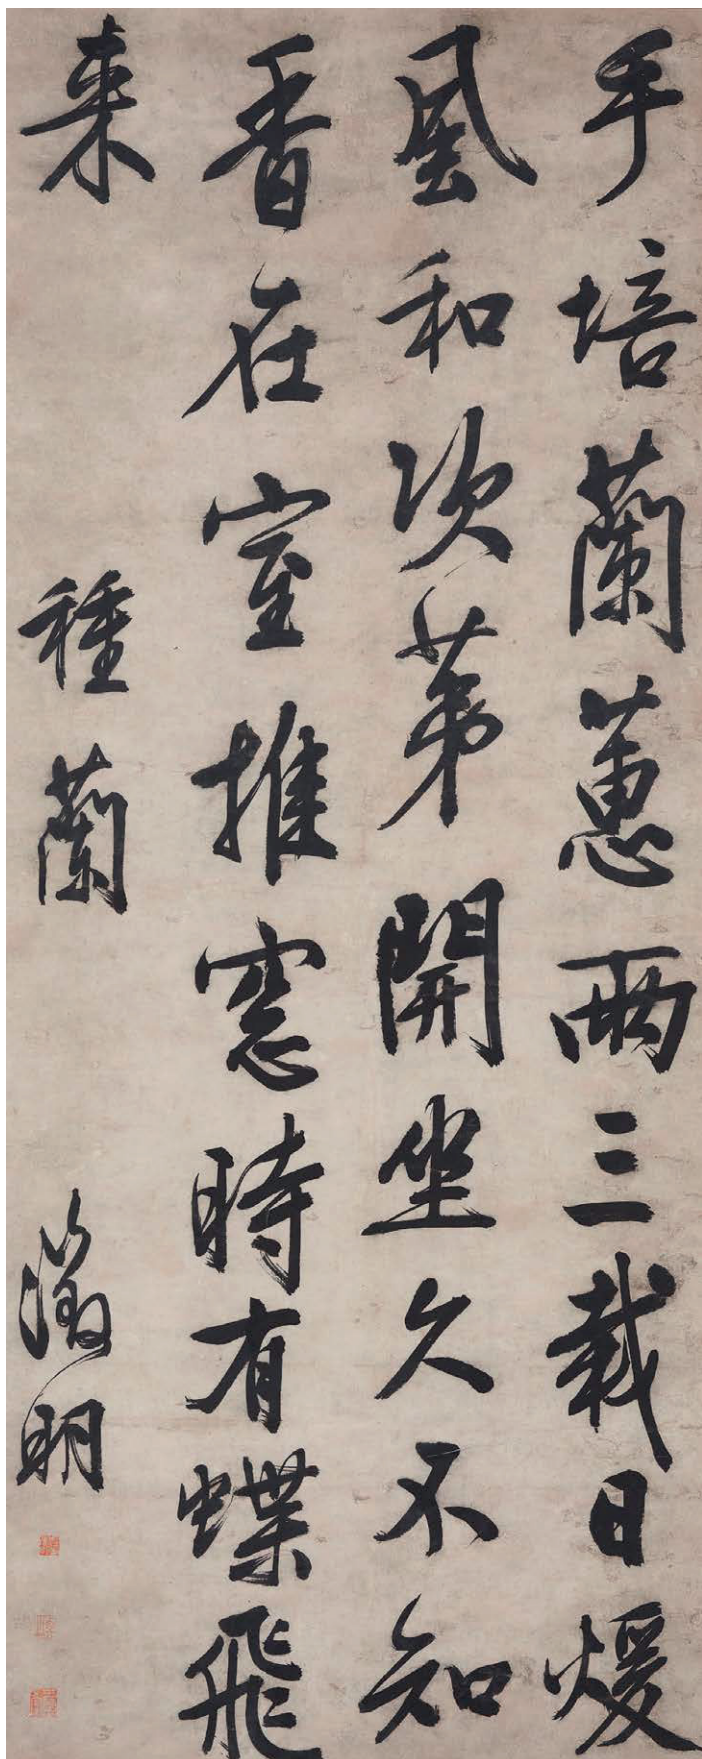 手培蘭蕙兩三栽日煖
風和次苐開坐久不知
香在室推窓時有蝶飛
来
種蘭
徵明